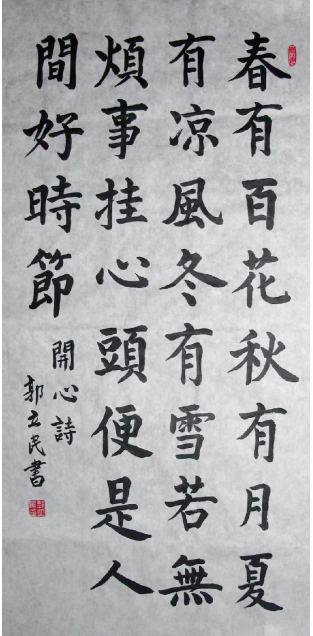 春有百花秋有月夏
有凉風冬有雪若無
煩事挂心頭便是人
間好時節
開心詩
郭立民書